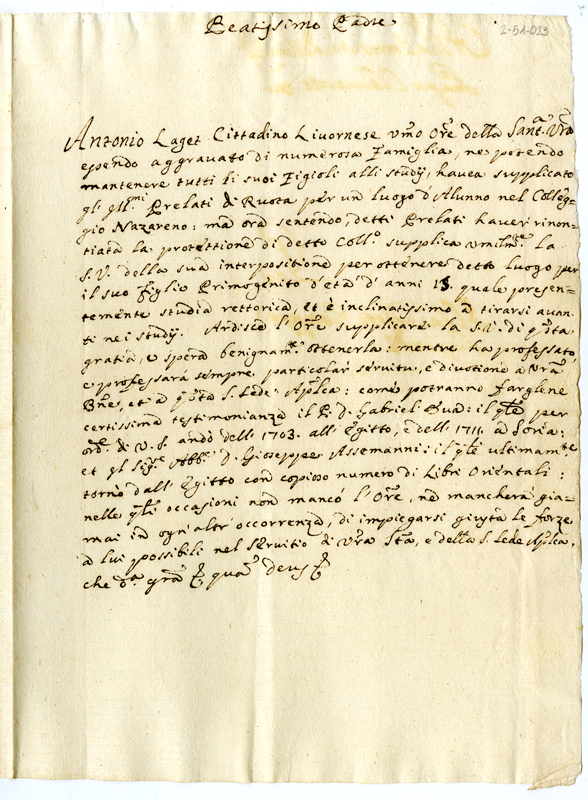 Beatissimo Padre
2-51-023
Antonio Laget Cittadino Livornese um.o Ore della Sant.a Vra
essendo aggravato di numerosa Famiglia, ne potendo
mantenere tutti li suoi Figioli alli studij, havea supplicato
gl' Ill.mi Prelati di Ruota per un luogo d'Alunno nel Colleg-
gio Nazareno: ma ora sentendo, detti Prelati haver rinon-
tiata la protettione di detto Coll.o supplica umilm.te la
S.V. della sua interpositione per ottenere detto luogo per
il suo figlio Primogenito d'età d'anni 15. quale presen-
temente studia rettorica, et è inclinatissimo a tirarsi avan-
ti nei studij. Ardisce l'Ore supplicare la S.V. di qsta
gratia, e spera benignam.te ottenerla: mentre ha professato,
e professarà sempre particolar servitu, e divotione a Vra
Bne, et a qsta S. Sede Aplca: come potranno fargliene
certissima testimonianza il P. D. Gabriel Eva: il qle per
ord. di V. S. andò dell' 1703. all' Egitto, e dell' 1711. a Soria:
et gl Sig.re Abb.e D. Gioseppe Assemanni: il qle ultimam.te
tornò dall' Egitto con copioso numero di Libri Orientali:
nelle qli occasioni non mancò l'Ore, ne mancherà gia-
mai in ogn'altr' occorrenza, di impiegarsi giusta le forze
a lui possibili nel servitio di Vra Sta, e della S. Sede Aplca.
che d.a gra quā deus